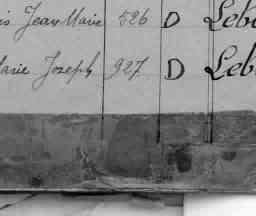 is Jean Marie 526 D Leb
arie Joseph 927 D Leb